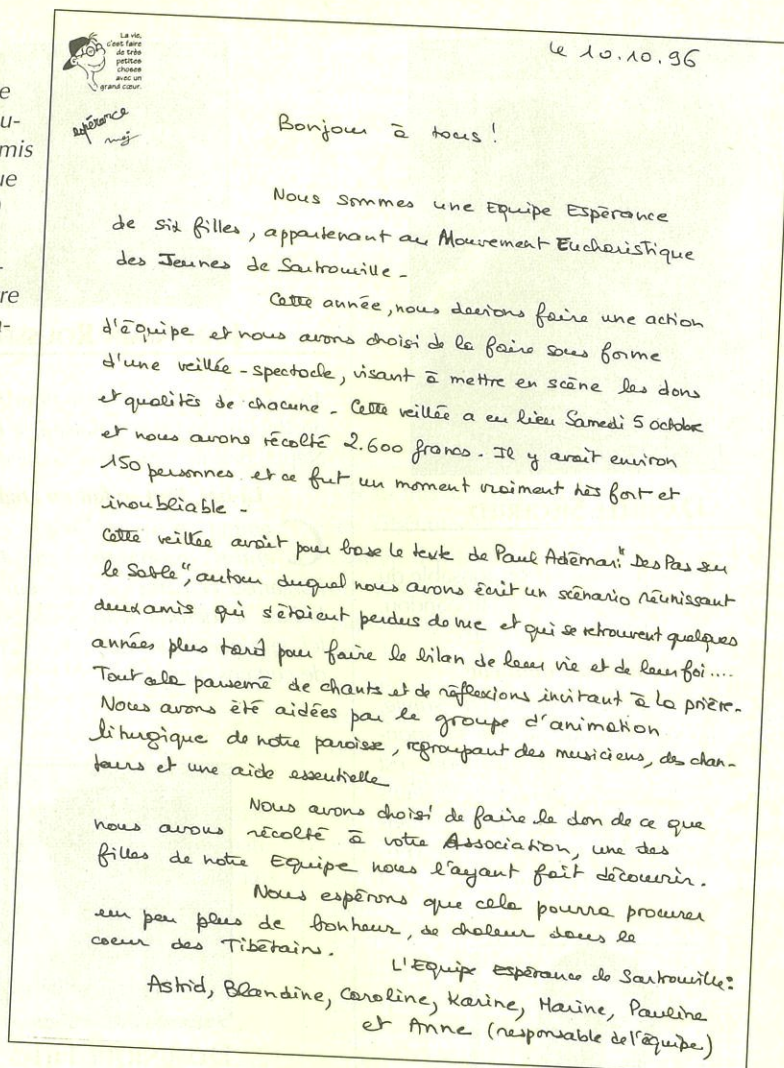 e
u-
mis
ue
-
re
-
La vie,
c'est faire
de très
petites
choses
avec un
grand cœur.
espérance
mej
Le 10.10.96
Bonjour à tous !
Nous sommes une Equipe Espérance
de six filles, appartenant au Mouvement Eucharistique
des Jeunes de Sartrouville -
Cette année, nous devions faire une action
d'équipe et nous avons choisi de la faire sous forme
d'une veillée-spectacle, visant à mettre en scène les dons
et qualités de chacune - Cette veillée a eu lieu Samedi 5 octobre
et nous avons récolté 2.600 francs. Il y avait environ
150 personnes et ce fut un moment vraiment très fort et
inoubliable -
Cette veillée avait pour base le texte de Paul Adémar: "Des Pas sur
le Sable", autour duquel nous avons écrit un scénario réunissant
deux amis qui s'étaient perdus de vue et qui se retrouvent quelques
années plus tard pour faire le bilan de leur vie et de leur foi....
Tout cela parsemé de chants et de réflexions incitant à la prière-
Nous avons été aidées par le groupe d'animation
liturgique de notre paroisse, regroupant des musiciens, des chan-
teurs et une aide essentielle
Nous avons choisi de faire le don de ce que
nous avons récolté à votre Association, une des
filles de notre Equipe nous l'ayant fait découvrir.
Nous espérons que cela pourra procurer
un peu plus de bonheur, de chaleur dans le
coeur des Tibétains.
L'Equipe Espérance de Sartrouville:
Astrid, Blandine, Caroline, Karine, Marine, Pauline
et Anne (responsable de l'équipe)